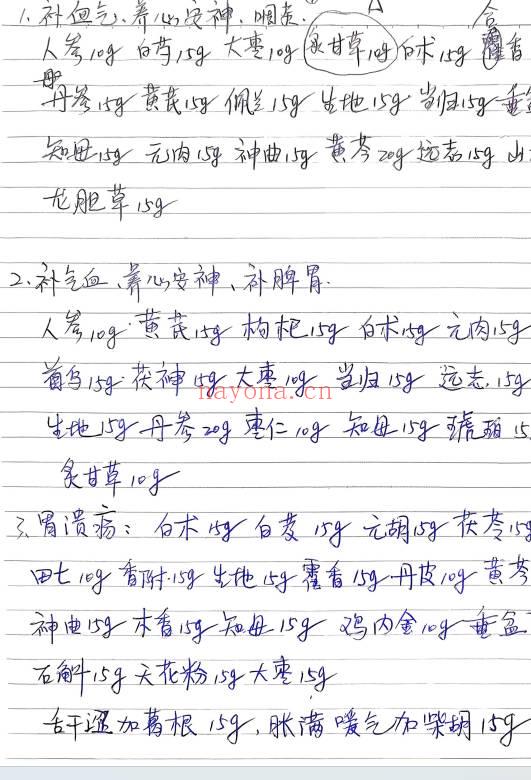 1. 补血气、养心安神、咽炎.
人参10g 白芍15g 大枣10g 炙甘草10g 白术15g 藿香
丹参15g 黄芪15g 佩兰15g 生地15g 当归15g 垂盆
知母15g 元肉15g 神曲15g 黄芩20g 远志15g 山
龙胆草15g
2. 补气血、养心安神、补脾胃.
人参10g 黄芪15g 枸杞15g 白术15g 元肉15g
首乌15g 茯神15g 大枣10g 当归15g 远志.15g
nayona.cn
生地15g 丹参20g 枣仁10g 知母15g 琥珀15
炙甘草10g
3、胃溃疡：白术15g 白芨15g 元胡15g 茯苓15g
田七10g 香附.15g 生地15g 藿香15g 丹皮10g 黄芩
神曲15g 木香15g 知母15g 鸡内金10g 垂盆
石斛15g 天花粉15g 大枣15g
舌干 加葛根15g，胀满嗳气加柴胡15g